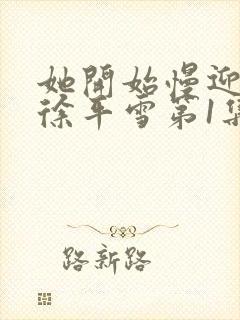 她開始慢迎
徐平雪第1集
路新路